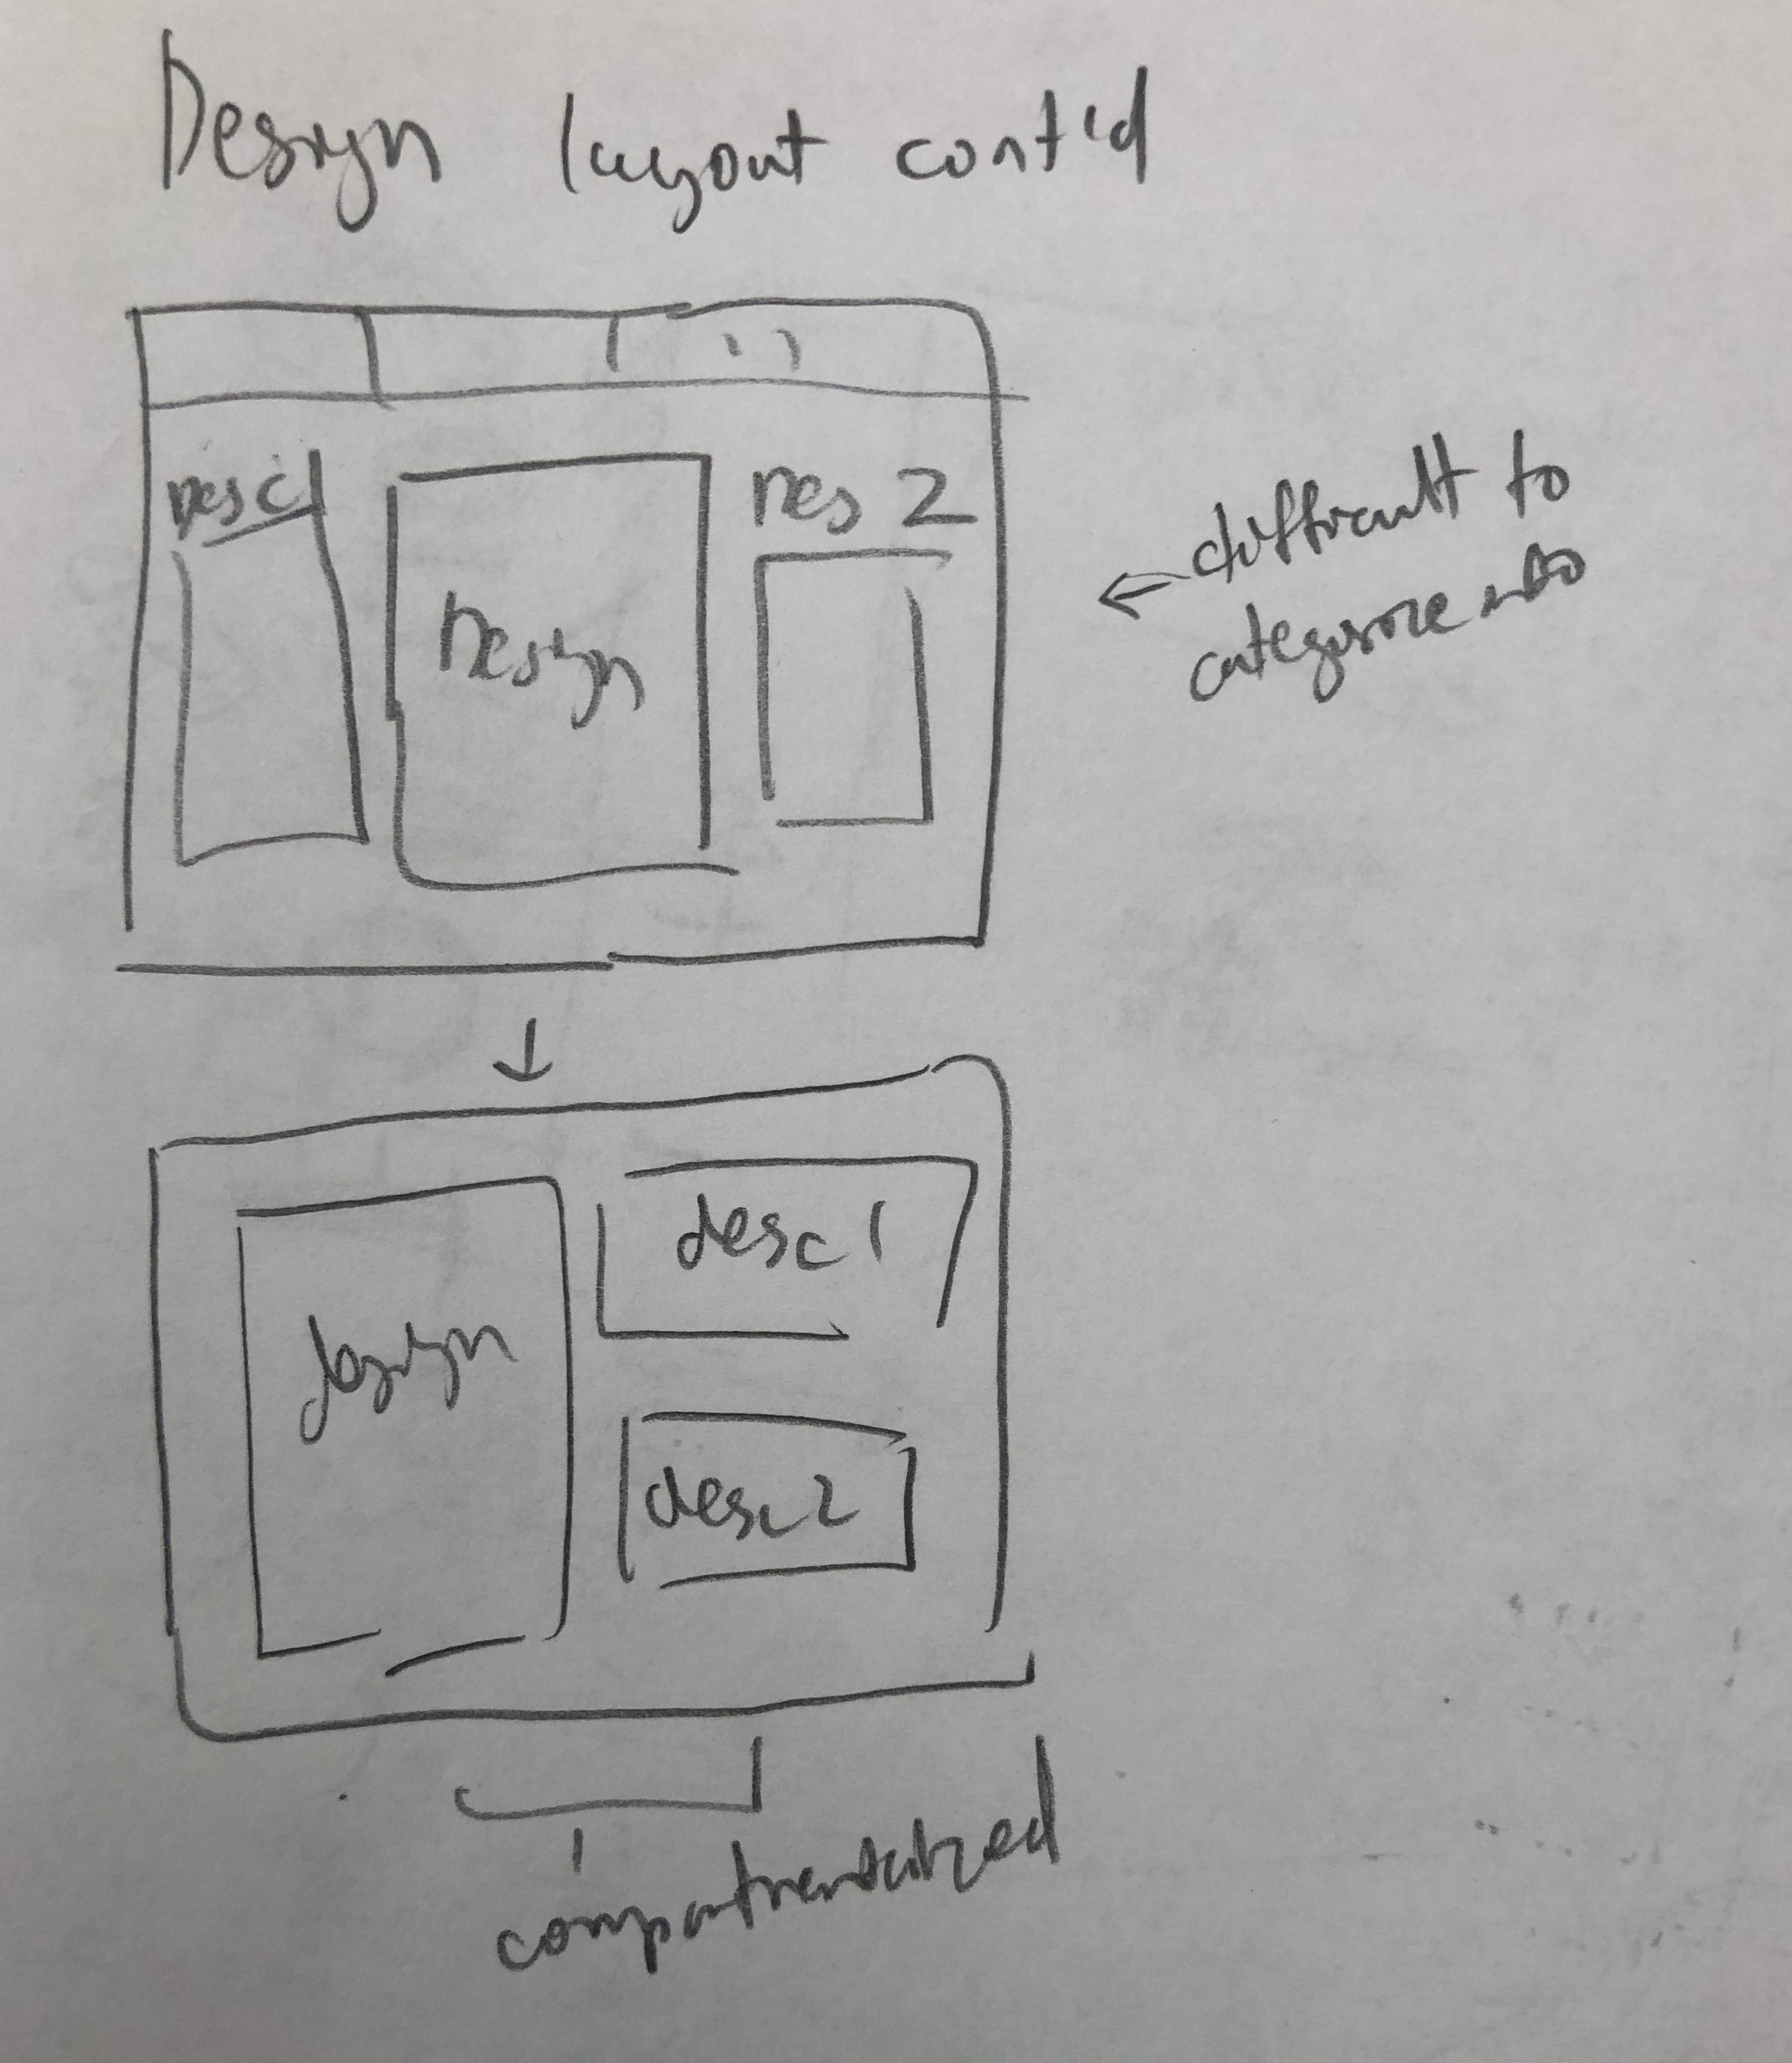 Design layout cont'd
Desc 1
Design
Des 2
← difficult to
categorize info
↓
design
desc 1
desc 2
compartmentalized